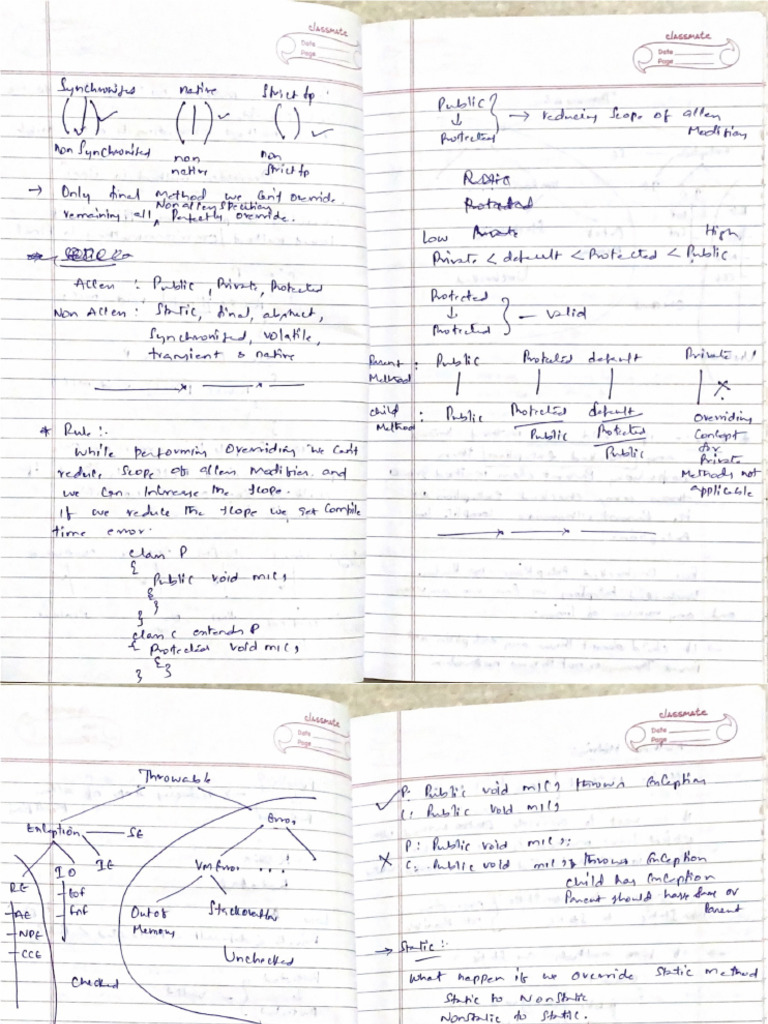 classmate
Date
Page
Synchronised native Strictfp
non Synchronised non native non Strictfp
→ Only final method we can't override
Non access specifiers
remaining all, Perfectly override.
Access : Public, Private, Protected
Non Access : Static, final, abstract,
Synchronized, volatile,
transient & native
* Rule :-
While performing Overriding we can't
reduce scope of access modifier and
we can increase the scope.
If we reduce the scope we get compile
time error.
class P
{
Public void m1()
{
}
}
class C extends P
{ Protected void m1()
{ }
}
classmate
Date
Page
Public
↓
Protected
→ reducing scope of access
Modifier
Low High
Private < default < Protected < Public
Protected
↓
Protected
— valid
Parent Method : Public Protected default Private
Child Method : Public Protected default
Public Protected
Public
Overriding
Concept
for
Private
Methods not
applicable
classmate
Date
Page
Throwable
Exception SE Error
RE IO IE VmError ...
AE Eof
NPE Fnf
CCE
Out of
Memory
Stackoverflow
Unchecked
Checked
classmate
Date
Page
P: Public void m1() throws Exception
C: Public void m1()
P: Public void m1();
C: Public void m1() throws Exception
Child has Exception
Parent should have same or
Parent
→ Static :-
What happen if we override static method
Static to Nonstatic
Nonstatic to static.